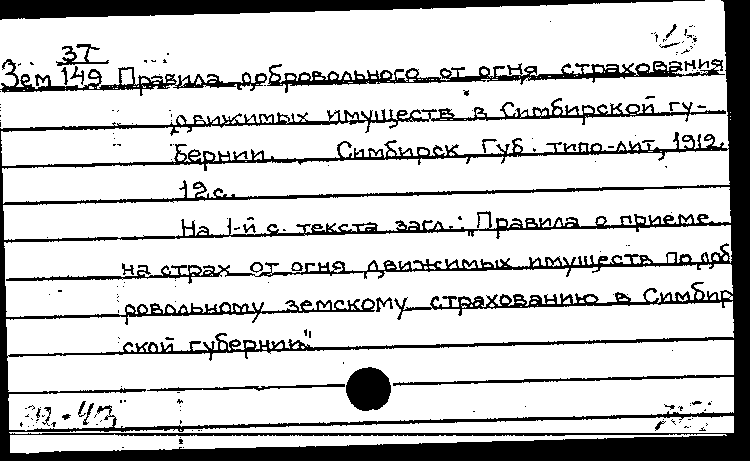 37
Зем 149 Правила добровольного от огня страхования
движимых имуществ в Симбирской гу-
бернии. Симбирск, Губ. типо-лит., 1912.
12 с.
На 1-й с. текста загл.: "Правила о приеме
на страх от огня движимых имуществ по доб
ровольному земскому страхованию в Симбир
ской губернии"